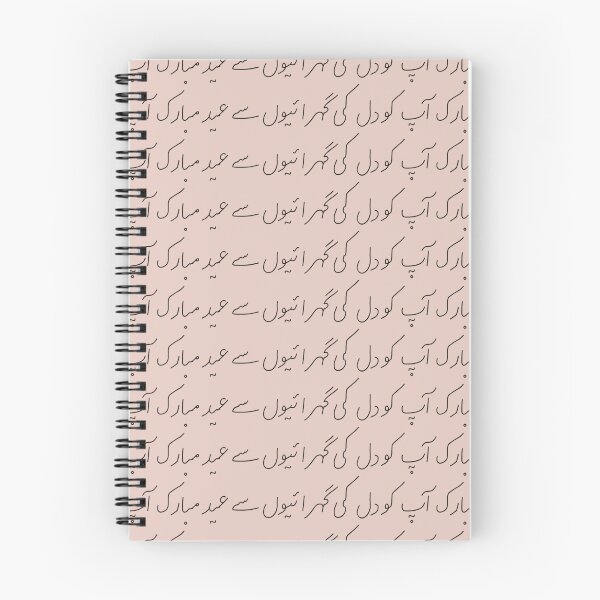 بارک آپ کو دل کی گہرائیوں سے عید مبارک آپ
بارک آپ کو دل کی گہرائیوں سے عید مبارک آپ
بارک آپ کو دل کی گہرائیوں سے عید مبارک آپ
بارک آپ کو دل کی گہرائیوں سے عید مبارک آپ
بارک آپ کو دل کی گہرائیوں سے عید مبارک آپ
بارک آپ کو دل کی گہرائیوں سے عید مبارک آپ
بارک آپ کو دل کی گہرائیوں سے عید مبارک آپ
بارک آپ کو دل کی گہرائیوں سے عید مبارک آپ
بارک آپ کو دل کی گہرائیوں سے عید مبارک آپ
بارک آپ کو دل کی گہرائیوں سے عید مبارک آپ